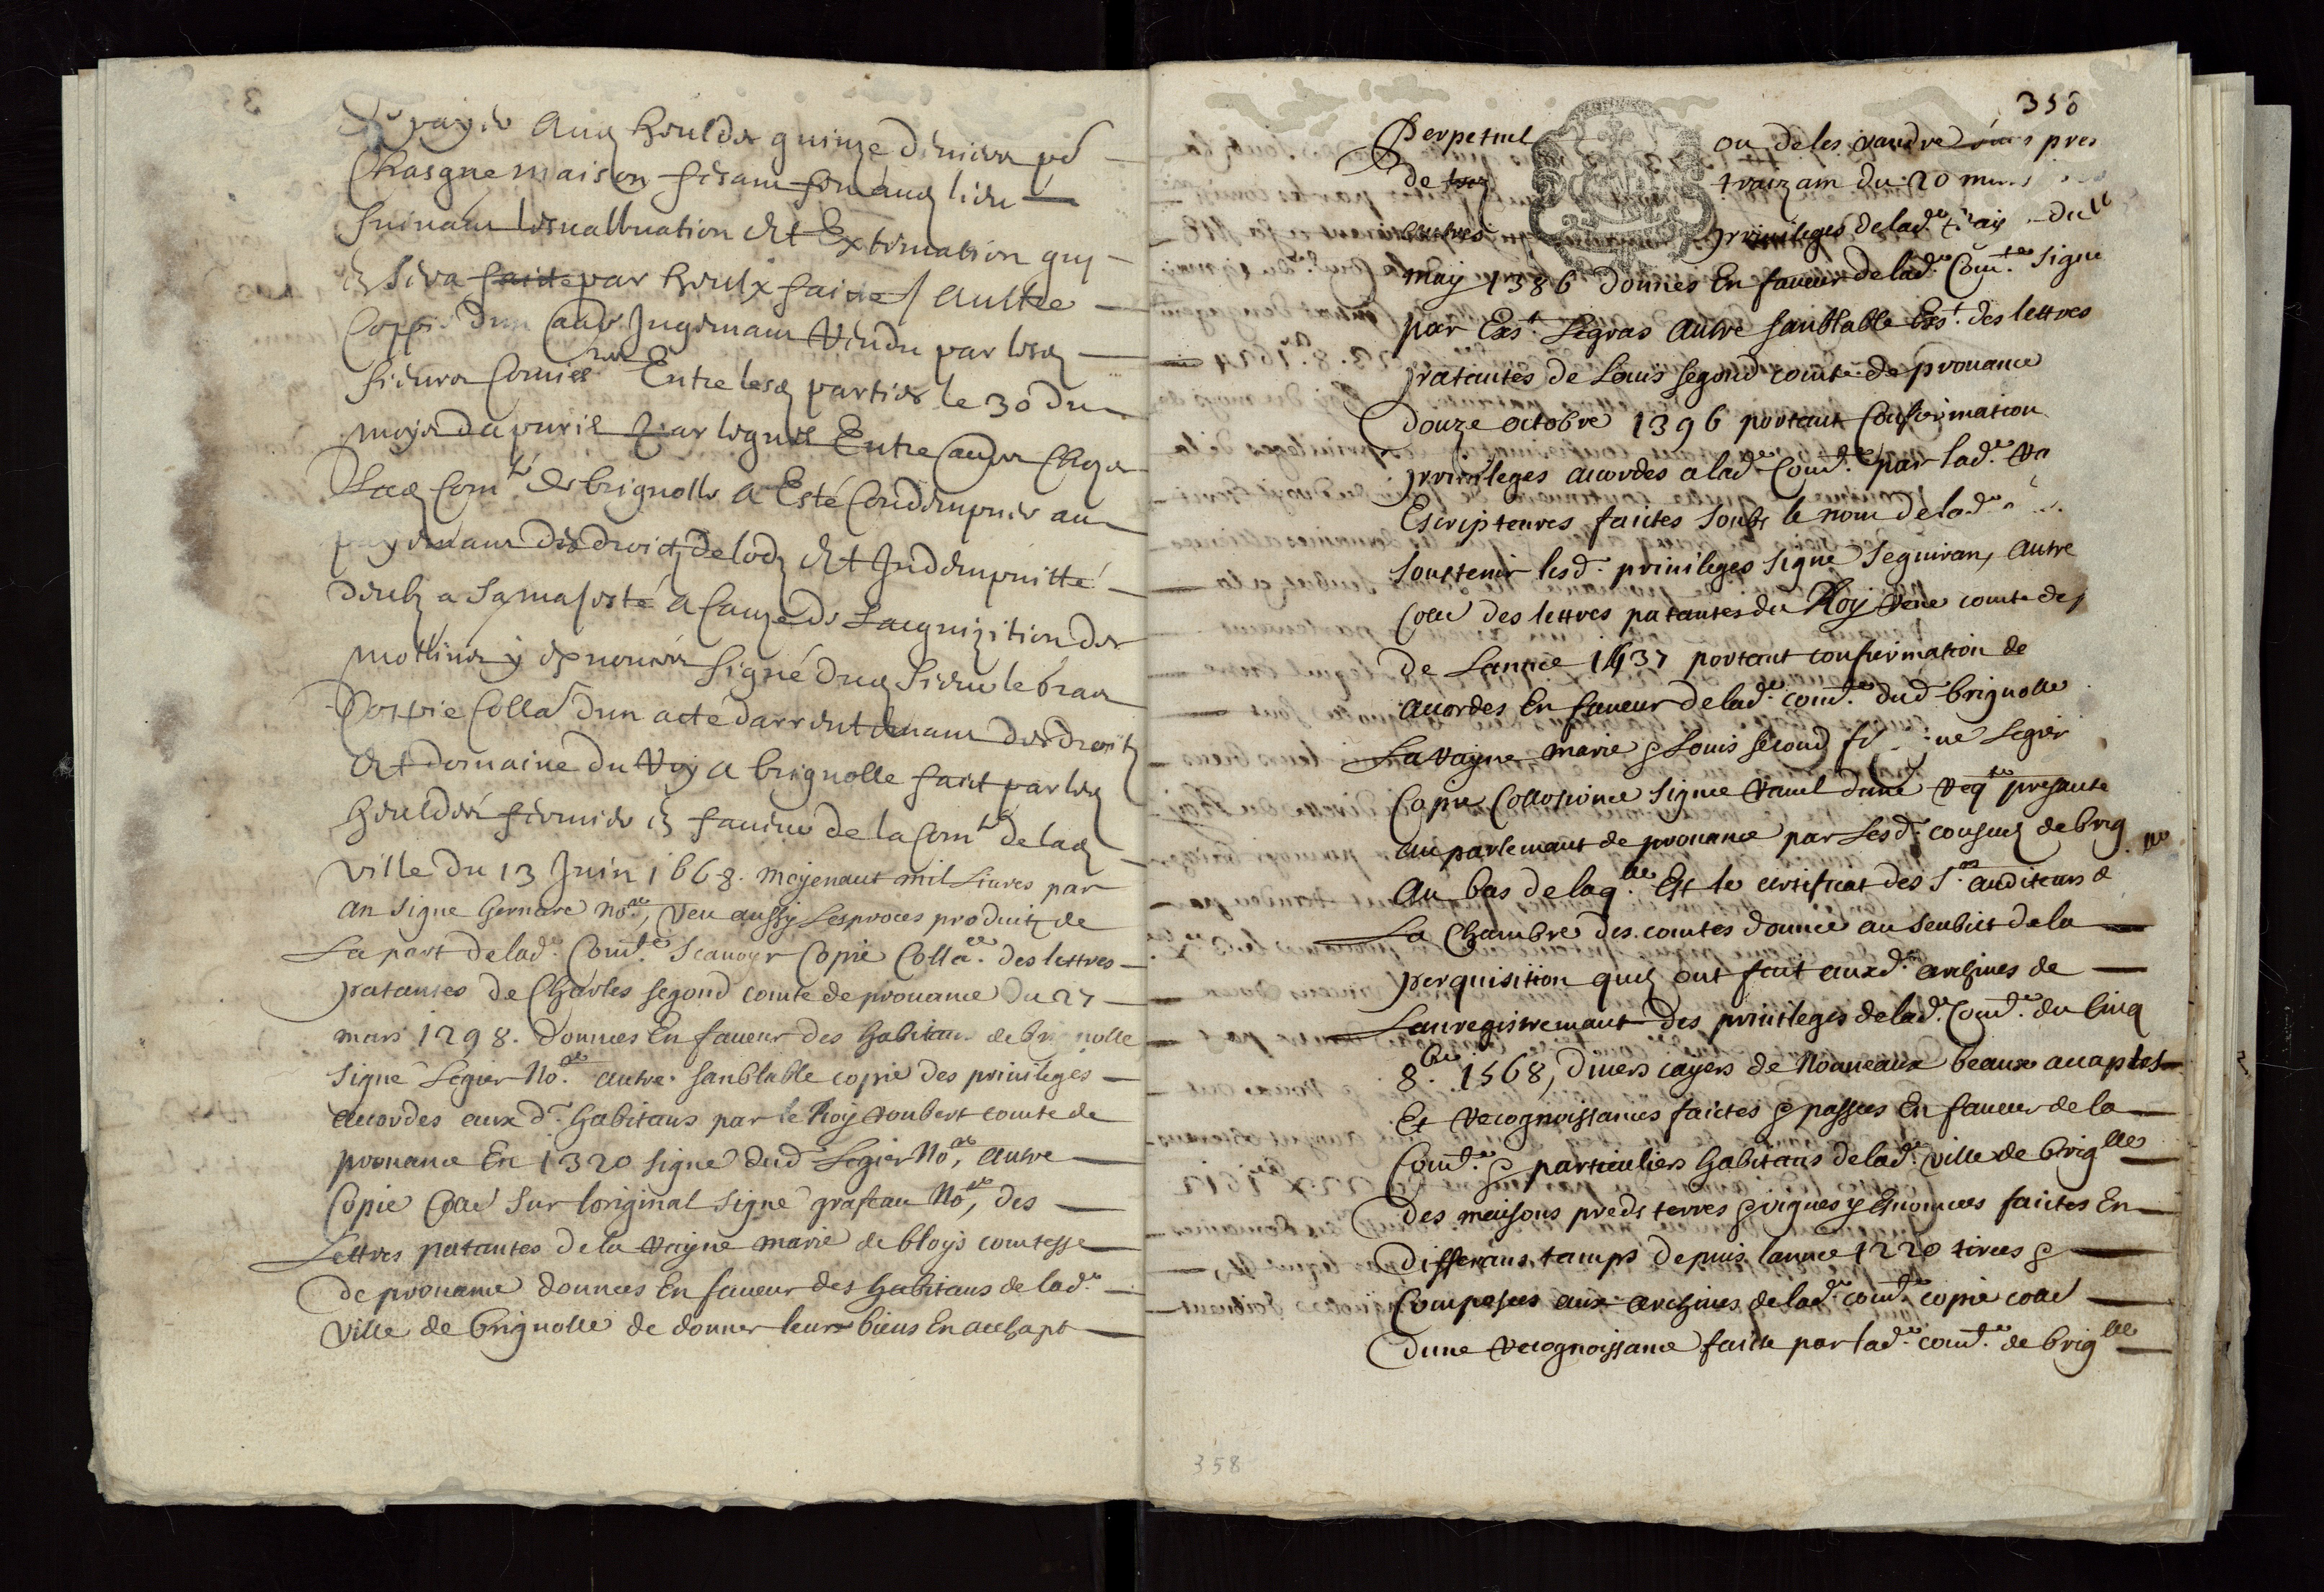 De payer Aud houlder quinze deniers pr
Chasque maison fesant four aud lieu
Suivant levalluation et Extimation quy
en sera faite par heulx faitte / Aultre
Coppie dun Autre Jugemant Rendu par lesd
Sieurs Comiss.res Entre lesd parties le 30 du
moys dapvril par lequel Entre Autres Chozes
Lad Com.té de brignolle A Esté Condempnée au
payemant des droictz de lodz et Indempnitté
deubz a Sa majesté A Cauze de Lacquizition des
mollins y espnoncés signé dud Sieur le bras
Coppie Colla dun acte darrentemant des droitz
et domaine du Roy a brignolle faict par led
houlder fermier en faveur de la Com.té de lad
ville du 13 Juin 1668. moyenant mil Livres par
an signe Gernare No.re, Veu aussy Lesproces produitz de
La part de lad.e Com.té Scavoyr Copie Colla.ée des lettres
patantes de Charles segond comte de provance du 27
mars 1298. donnees En faveur des habitans de brignolle
signe Legier No.re autre sanblable copie des privileges
acordes aux d. habitans par le Roy Roubert comte de
provance En 1320 signe dud Legier No.re, autre
Copie Colle sur loriginal signe grasseau No.re, des
Lettres patantes de la Rayne marie de bloys comtesse
de provance donnees En faveur des habitans de lad.e
ville de brignolle de donner leurs biens En acchapt
350
Perpetuel ou de les vandre
de traizain du 20
autres privileges de lad.e
may 1386 donnes En faveur de lad.e Com.té signe
par Ext. Legras Autre sanblable Ext. des lettres
patantes de Louis segond comte de provance
douze octobre 1396 portant Confirmation
privileges acordes a lad.e Com.té par lad.e
Escriptures faictes soubz le nom de lad.e
soustenir lesd. privileges signe seguiran, autre
Colle des lettres patantes du Roy Rene comte de
de Lannee 1437 portant confirmation de
acordes En faveur de lad.e com.té dud brignolle
La Rayne marie & Louis second Legier
Copie Collationnee signee Ravel dune Req.te presante
au parlemant de provance par Lesd. consuls de brig.lle
Au bas de laq.lle Est le certificat des s.rs auditeurs
La Chambre des comtes donnee au seubiet de la
perquisition quilz ont fait auxd. archives de
Lanregistremant des privileges de lad.e Com.té du Cinq
8.bre 1568, divers cayers de Nouveaux beaux acaptes
Et Recognoissances faictes & passees En faveur de la
Com.té & particuliers habitans de lad.e ville de brig.lle
des maisons preds terres & vignes y Enoncees faictes En
differans tamps depuis lannee 1220 tirees &
Composees aux archives de lad.e com.té copie colle
dune Recognoissance faicte par lad.e com.té de brig.lle
358